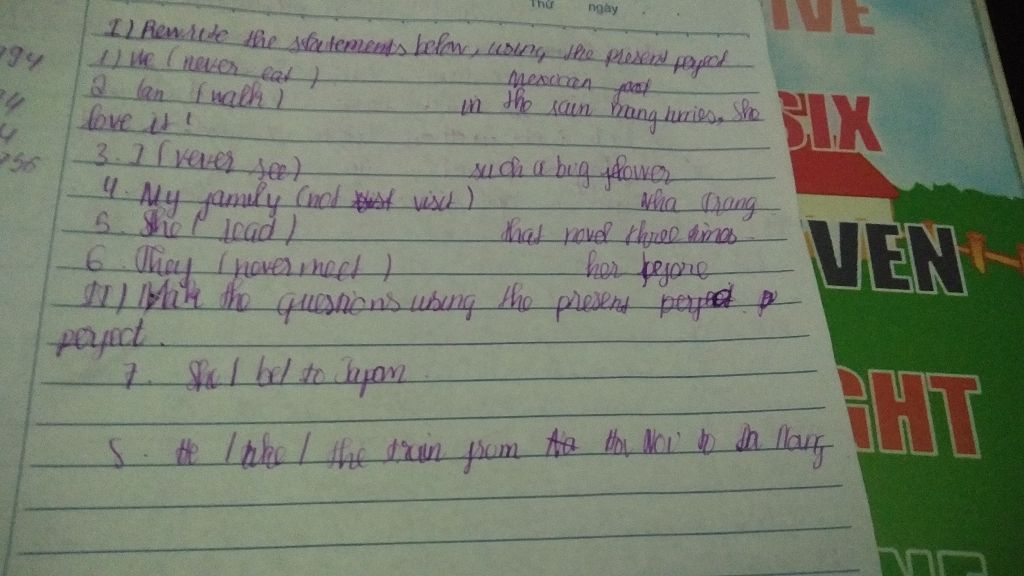 Thứ ngày
IVE
I) Rewrite the statements below, using the present perfect
1) We (never eat) Mexican food
2 Ian (walk) in the rain many times, She
love it!
SIX
3. I (never see) such a big flower
4. My family (not visit) Nha Trang
5. She (read) that novel three times
VEN
6. They (never meet) her before
II) Make the questions using the present
perfect.
7. She / be / to Japan.
GHT
8. He / take / the train from Ha Noi to Da Nang
NE